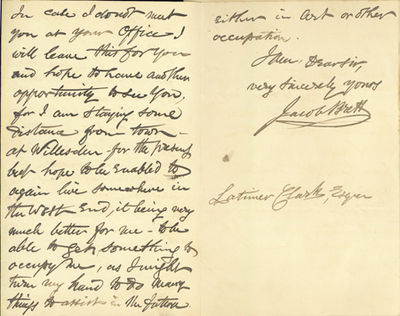 In case I do not meet
you at your Office I
will leave this for you
and hope to have another
opportunity to see you,
for I am staying some
distance from town -
at Willesden - for the present
but hope to be enabled to
again live somewhere in
the West End, it being very
much better for me - to be
able to get something to
occupy me, as I might
turn my hand to do many
things to assist in the future
either in Art or other
occupation.
I am Dear Sir,
very sincerely yours
Jacob Brett
Latimer Clark, Esqre